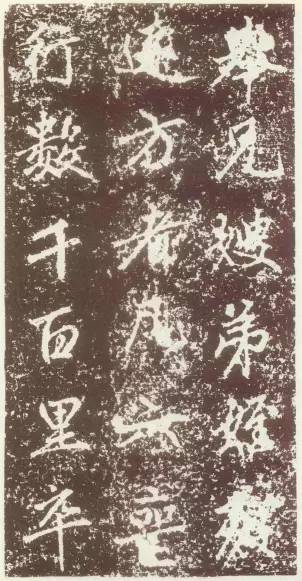 舉兄嫂弟姪殯
遠方者凡六喪
行數千百里卒